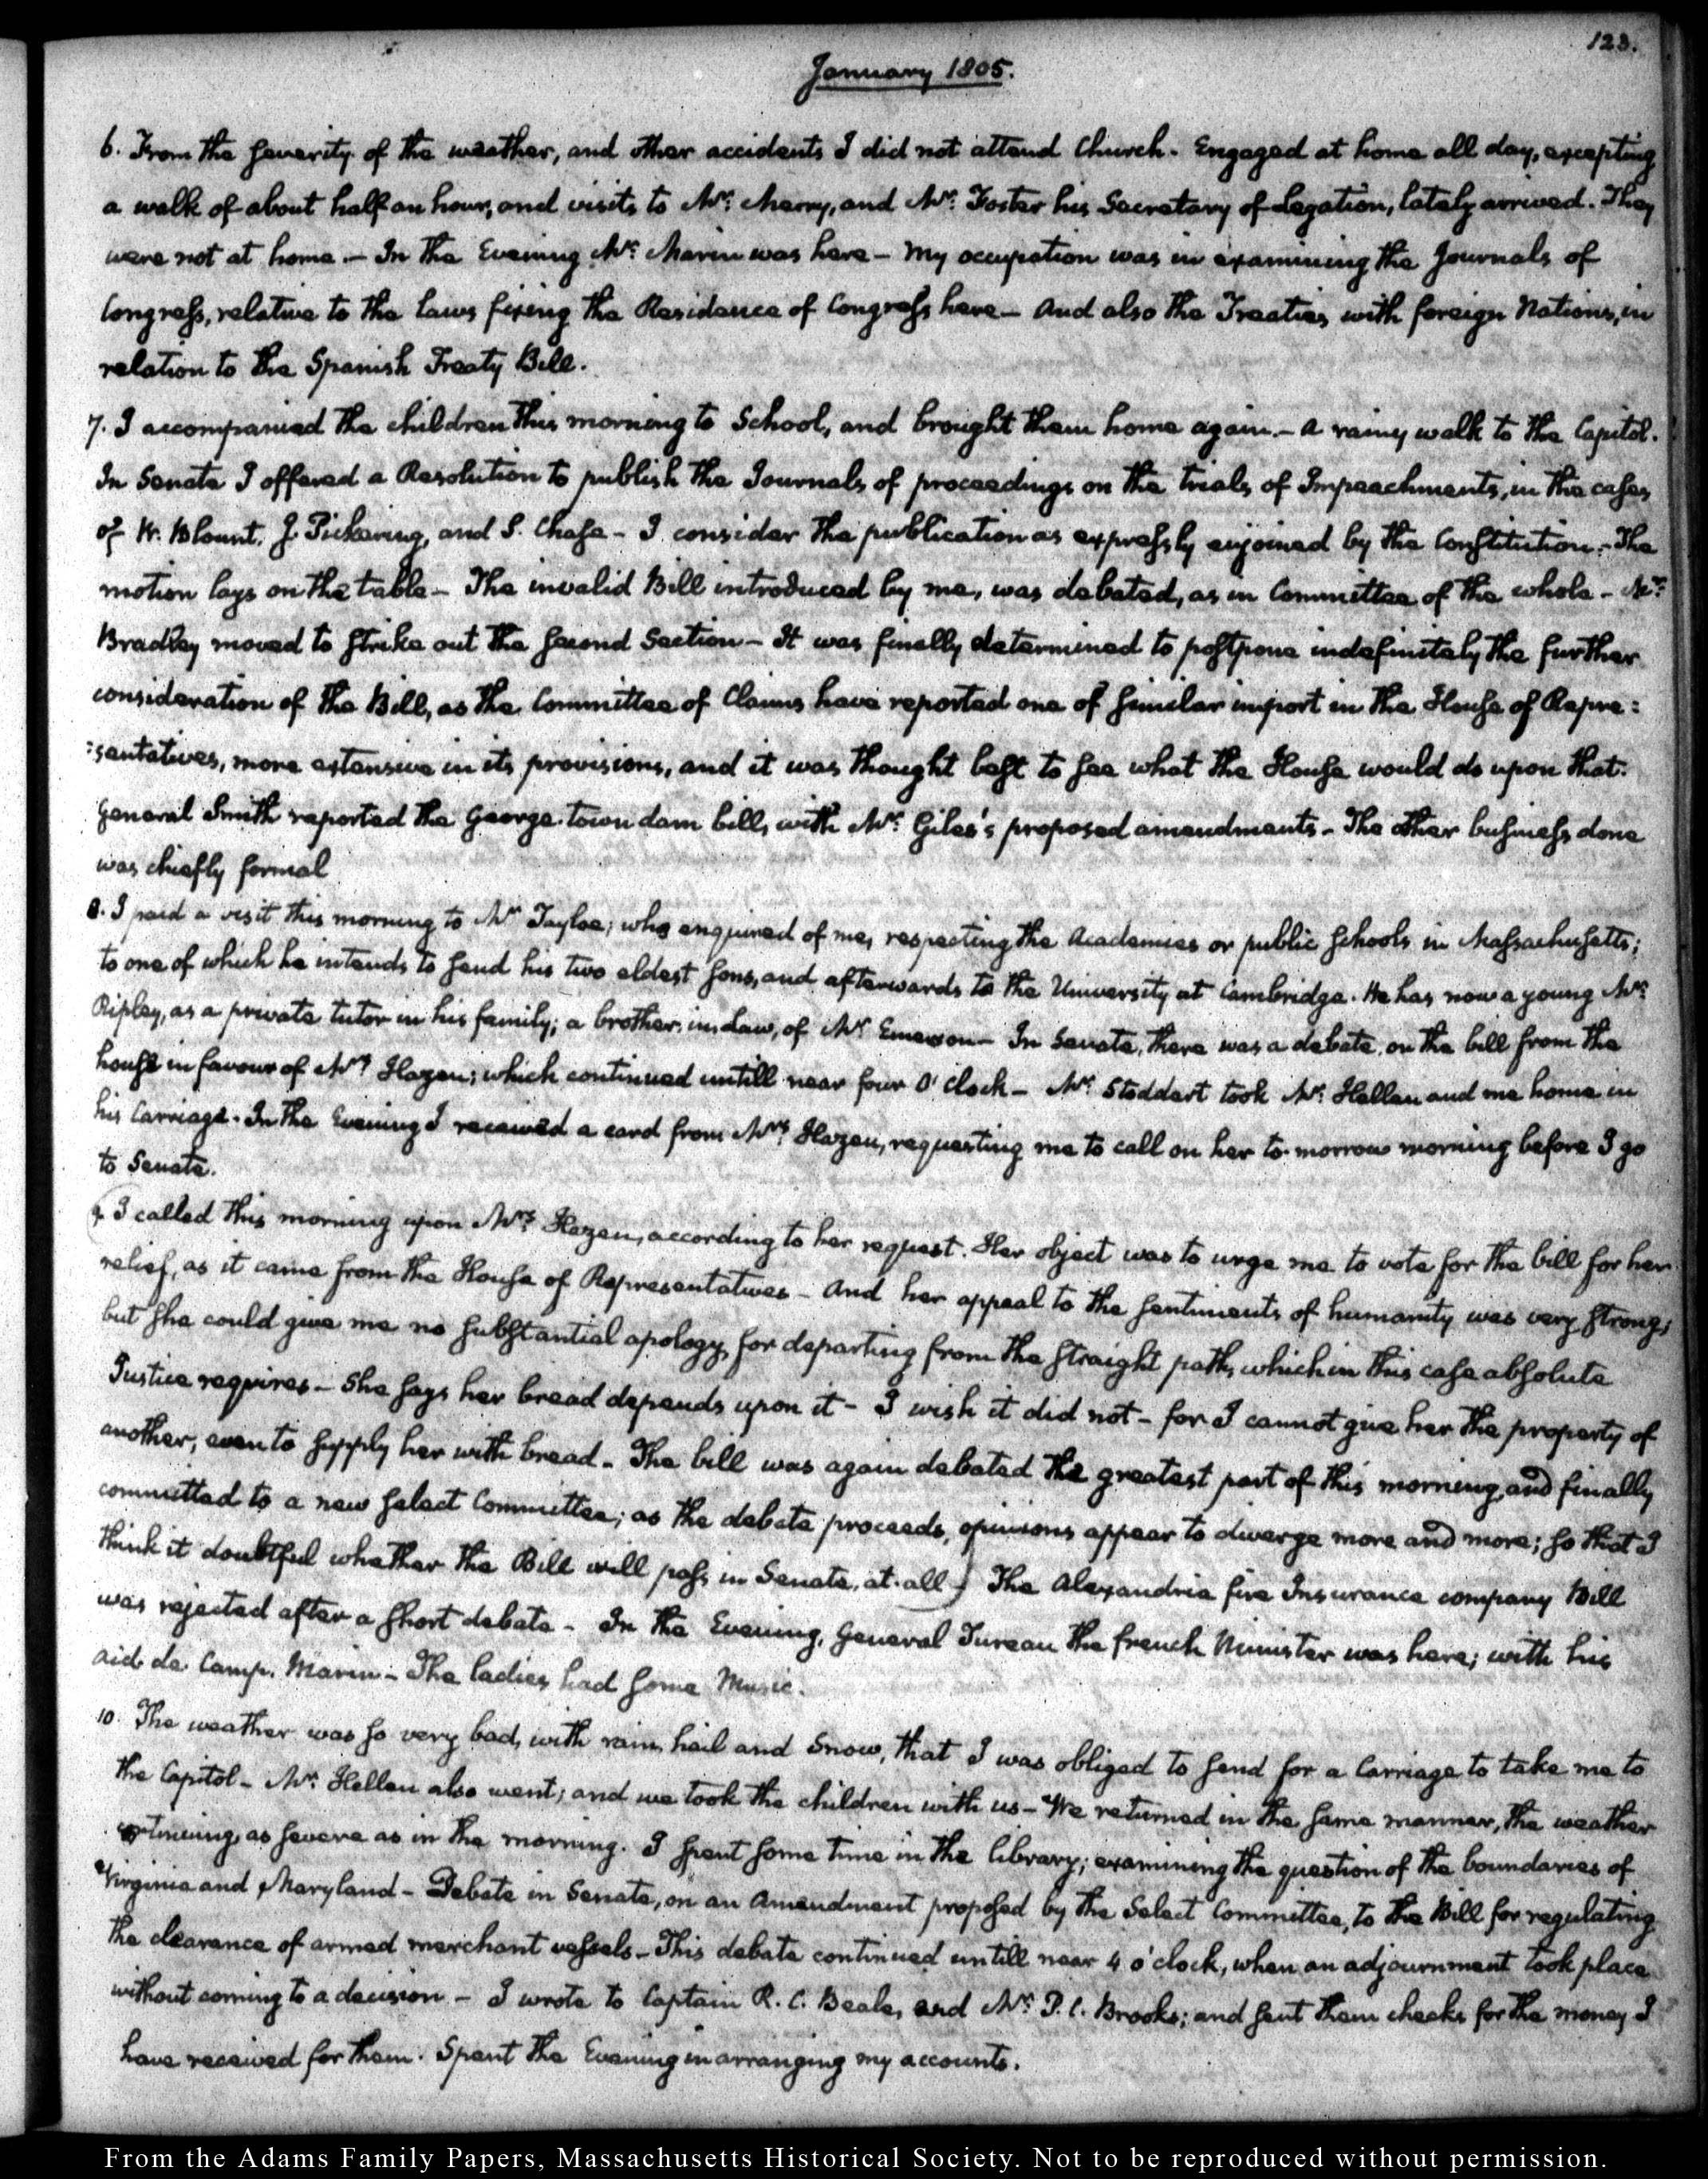 123.
January 1805.
6. From the severity of the weather, and other accidents I did not attend Church. Engaged at home all day, excepting
a walk of about half an hour, and visits to Mr: Merry, and Mr: Foster his Secretary of Legation, lately arrived. They
were not at home. — In the Evening Mr: Marin was here — My occupation was in examining the Journals of
Congress, relative to the Laws fixing the Residence of Congress here — And also the Treaties with foreign Nations, in
relation to the Spanish Treaty Bill.
7. I accompanied the children this morning to School, and brought them home again. — A rainy walk to the Capitol.
In Senate I offered a Resolution to publish the Journals of proceedings on the trials of Impeachments, in the cases
of W. Blount, J. Pickering, and S. Chase — I consider the publication as expressly enjoined by the Constitution. — The
motion lays on the table — The invalid Bill introduced by me, was debated, as in Committee of the whole — Mr:
Bradley moved to strike out the second Section — It was finally determined to postpone indefinitely the further
consideration of the Bill, as the Committee of Claims have reported one of similar import in the House of Repre:
:sentatives, more extensive in its provisions, and it was thought best to see what the House would do upon that.
General Smith reported the George-town dam bill, with Mr: Giles's proposed amendments — The other business done
was chiefly formal
8. I paid a visit this morning to Mr: Tayloe; who enquired of me, respecting the Academies or public schools in Massachusetts;
to one of which he intends to send his two eldest sons, and afterwards to the University at Cambridge. He has now a young Mr:
Ripley, as a private tutor in his family; a brother-in-law, of Mr: Emerson — In Senate, there was a debate, on the bill from the
house in favour of Mrs: Hazen; which continued untill near four O'clock — Mr: Stoddert took Mr: Hellen and me home in
his Carriage. In the Evening I received a card from Mrs: Hazen, requesting me to call on her to-morrow morning before I go
to Senate.
9. I called this morning upon Mrs: Hazen, according to her request. Her object was to urge me to vote for the bill for her
relief, as it came from the House of Representatives — And her appeal to the sentiments of humanity was very strong;
but she could give me no substantial apology, for departing from the straight path, which in this case absolute
Justice requires — She says her bread depends upon it — I wish it did not — for I cannot give her the property of
another, even to supply her with bread — The bill was again debated the greatest part of this morning, and finally
committed to a new select Committee; as the debate proceeds, opinions appear to diverge more and more; so that I
think it doubtful whether the Bill will pass in Senate, at all) The Alexandria fire Insurance company Bill
was rejected after a short debate — In the Evening, General Tureau the french Minister was here; with his
aid de Camp. Marin — The ladies had some Music.
10. The weather was so very bad, with rain, hail and snow, that I was obliged to send for a Carriage to take me to
the Capitol — Mr: Hellen also went; and we took the children with us — We returned in the same manner, the weather
continuing, as severe as in the morning. I spent some time in the library; examining the question of the boundaries of
Virginia and Maryland — Debate in Senate, on an Amendment proposed by the Select Committee, to the Bill for regulating
the clearance of armed merchant vessels — This debate continued untill near 4 o'clock, when an adjournment took place
without coming to a decision — I wrote to Captain R. C. Beale, and Mr: P. C. Brooks; and sent them checks for the money I
have received for them. Spent the Evening in arranging my accounts.
From the Adams Family Papers, Massachusetts Historical Society. Not to be reproduced without permission.